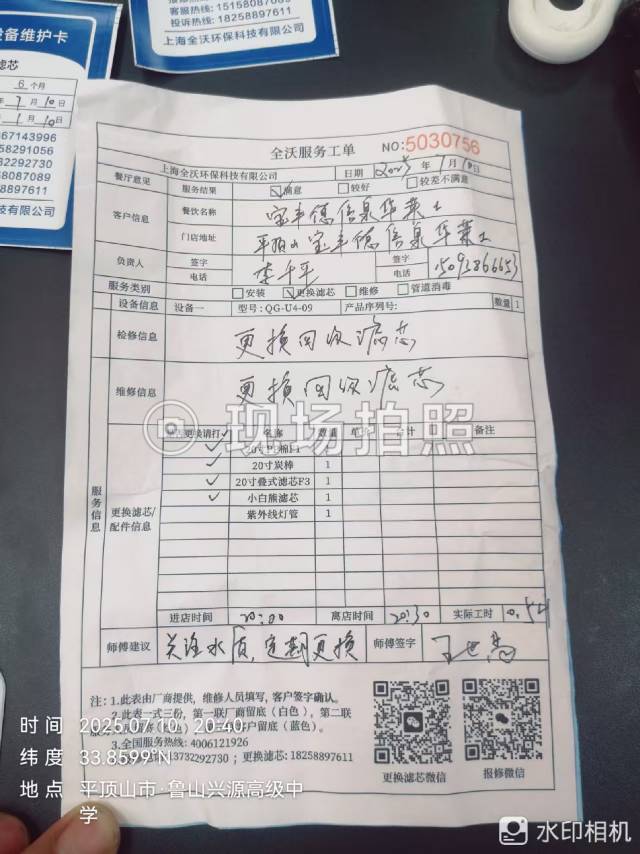 设备维护卡
滤芯
6 个月
年 7 月 10 日
1 月 10 日
67143996
58291056
32292730
58087089
8897611
客服热线: 15158087089
投诉热线: 18258897611
上海全沃环保科技有限公司
全沃服务工单 NO:5030756
上海全沃环保科技有限公司 日期 2025 年 7 月 10 日
餐厅意见 服务结果 满意 较好 较差不满意
客户信息 餐饮名称 宝丰德信泉华莱士
门店地址 平顶山宝丰德信泉华莱士
负责人 签字 签字
电话 电话
服务类别 安装 更换滤芯 维修 管道消毒
设备信息 设备一 型号: QG-U4-09 产品序列号: 数量 1
检修信息 更换四级滤芯
维修信息 更换四级滤芯
现场拍照
更换请打✓ 名称 数量 单 合计 备注
服务信息 更换滤芯/配件信息
✓ 20寸PP棉F1
✓ 20寸炭棒 1
✓ 20寸叠式滤芯F3 1
✓ 小白熊滤芯 1
紫外线灯管 1
进店时间 20:00 离店时间 20:30 实际工时 0.5H
师傅建议 关注水质,定期更换 师傅签字
注: 1.此表由厂商提供, 维修人员填写, 客户签字确认。
2.此表一式三份, 第一联厂商留底(白色), 第二联
客户留底(蓝色)。
3.全国服务热线: 4006121926
13732292730; 更换滤芯: 18258897611
更换滤芯微信 报修微信
时间 2025.07.10 20:40
纬度 33.8599°N
地点 平顶山市·鲁山兴源高级中
学
水印相机